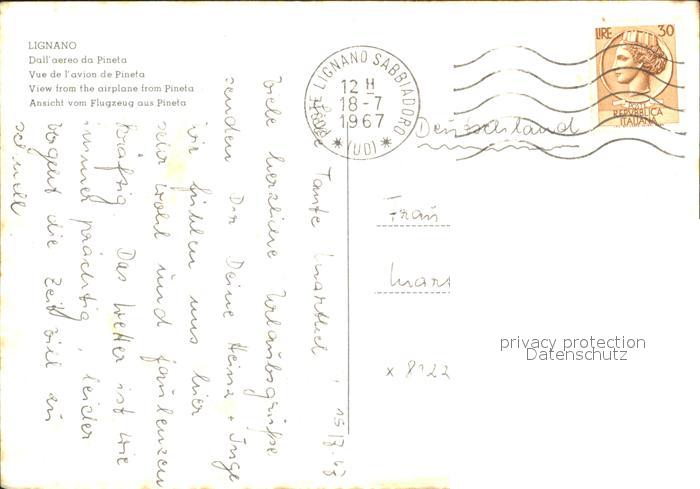 LIGNANO
Dall'aereo da Pineta
Vue de l'avion de Pineta
View from the airplane from Pineta
Ansicht vom Flugzeug aus Pineta
LIGNANO SABBIADORO
12 H
18-7
1967
(UD)
LIRE 30
POSTE
REPUBBLICA
ITALIANA
Deutschland
Frau
Mart
x 8122
privacy protection
Datenschutz
15/7.67
Liebe Tante Marthel!
Viele herzliche Urlaubsgrüße
senden Dir Deine Heinz + Inge
wir fühlen uns hier
sehr wohl und faulenzen
kräftig. Das Wetter ist wie
immer prächtig, leider
vergeht die Zeit viel zu
schnell.